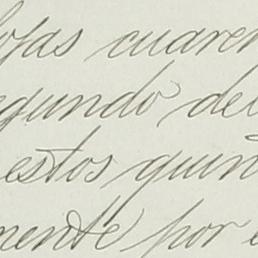 ojas cuaren
egundo del
estos quin
mente por e